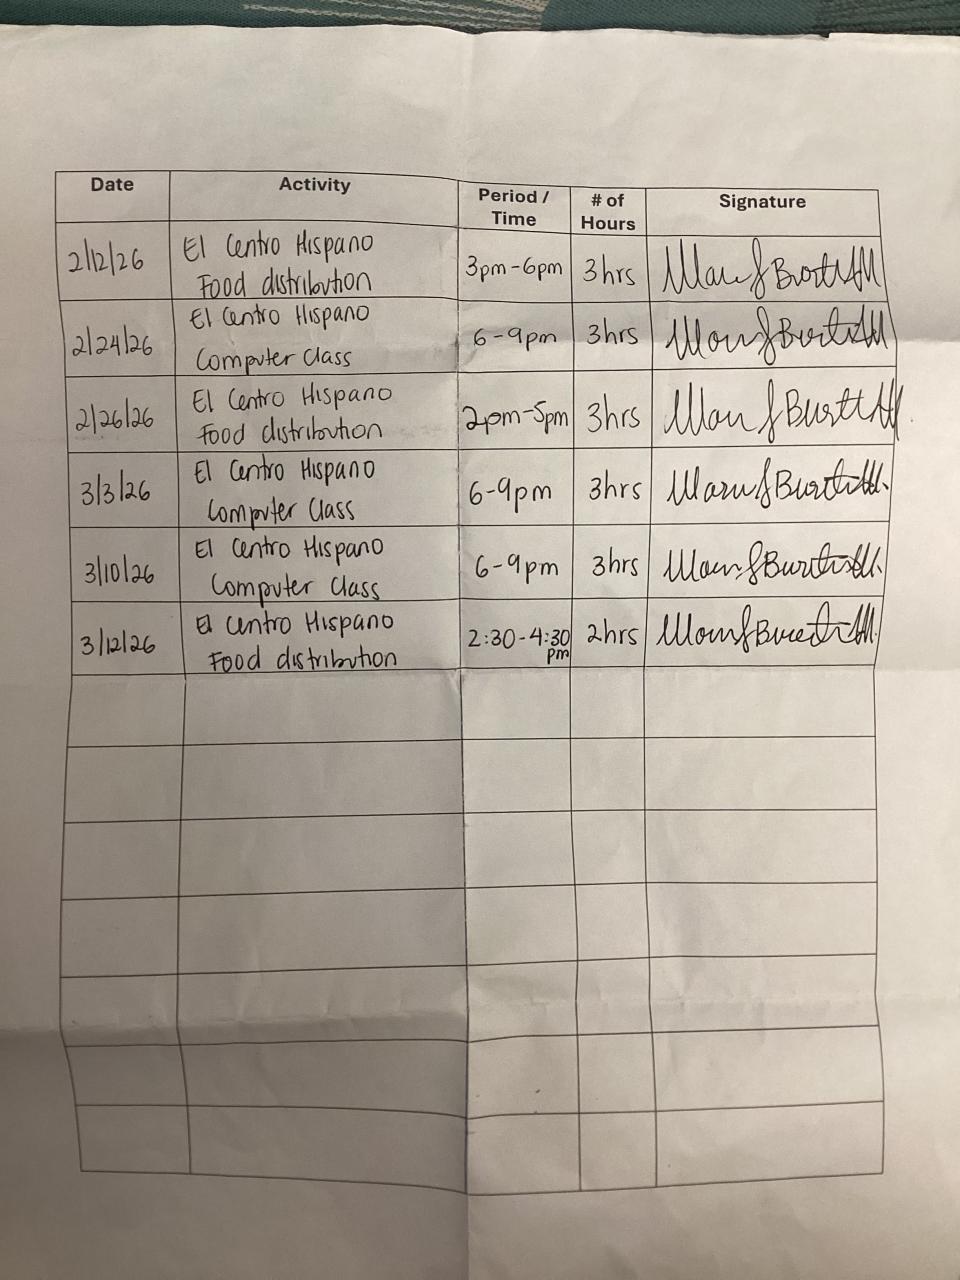 Date Activity Period / Time # of Hours Signature
2/12/26 El Centro Hispano Food distribution 3pm-6pm 3hrs
2/24/26 El Centro Hispano Computer Class 6-9pm 3hrs
2/26/26 El Centro Hispano Food distribution 2pm-5pm 3hrs
3/3/26 El Centro Hispano Computer Class 6-9pm 3hrs
3/10/26 El Centro Hispano Computer Class 6-9pm 3hrs
3/12/26 El Centro Hispano Food distribution 2:30-4:30 pm 2hrs